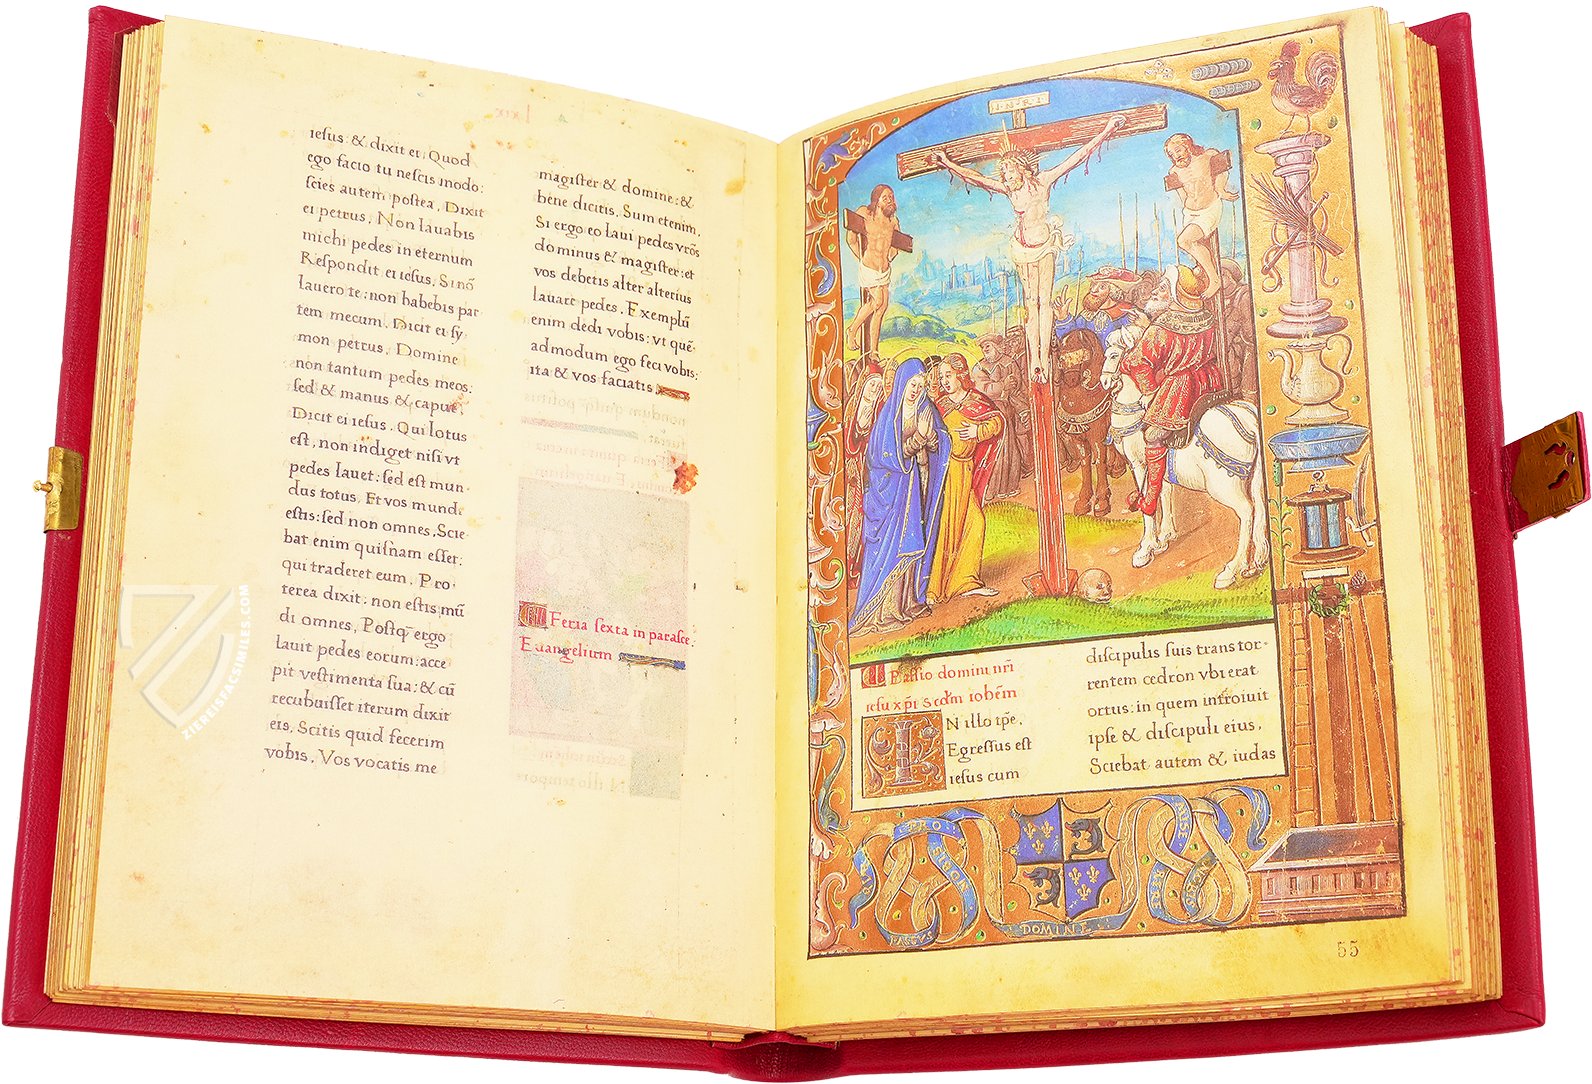 lxix
iesus: & dixit ei, Quod
ego facio tu nescis modo:
scies autem postea, Dixit
ei petrus, Non lauabis
michi pedes in eternum
Respondit ei iesus, Si nō
lauero te: non habebis par
tem mecum, Dicit ei sy,
mon petrus, Domine
non tantum pedes meos:
sed & manus & caput,
Dicit ei iesus, Qui lotus
est, non indiget nisi vt
pedes lauet: sed est mun-
dus totus, Et vos mundi
estis: sed non omnes, Scie-
bat enim quisnam esset:
qui traderet eum, Pro-
terea dixit: non estis mū
di omnes, Postq̄ ergo
lauit pedes eorum: acce
pit vestimenta sua: & cū
recubuisset iterum dixit
eis, Scitis quid fecerim
vobis, Vos vocatis me
magister & domine: &
bene dicitis, Sum etenim,
Si ergo eo laui pedes vr̄os
dominus & magister: et
vos debetis alter alterius
lauare pedes, Exemplū
enim dedi vobis: vt quē-
admodum ego feci vobis:
ita & vos faciatis
Feria sexta in parasce,
Euangelium
I·N·R·I
Passio domini nr̄i
iesu xp̄i scd̄m iohēm
IN illo tp̄e,
Egressus est
iesus cum
discipulis suis trans tor-
rentem cedron vbi erat
ortus: in quem introiuit
ipse & discipuli eius,
Sciebat autem & iudas
PRO
PASCVS
DOMINI
MISE
55
ZIEREISFACSIMILES.COM